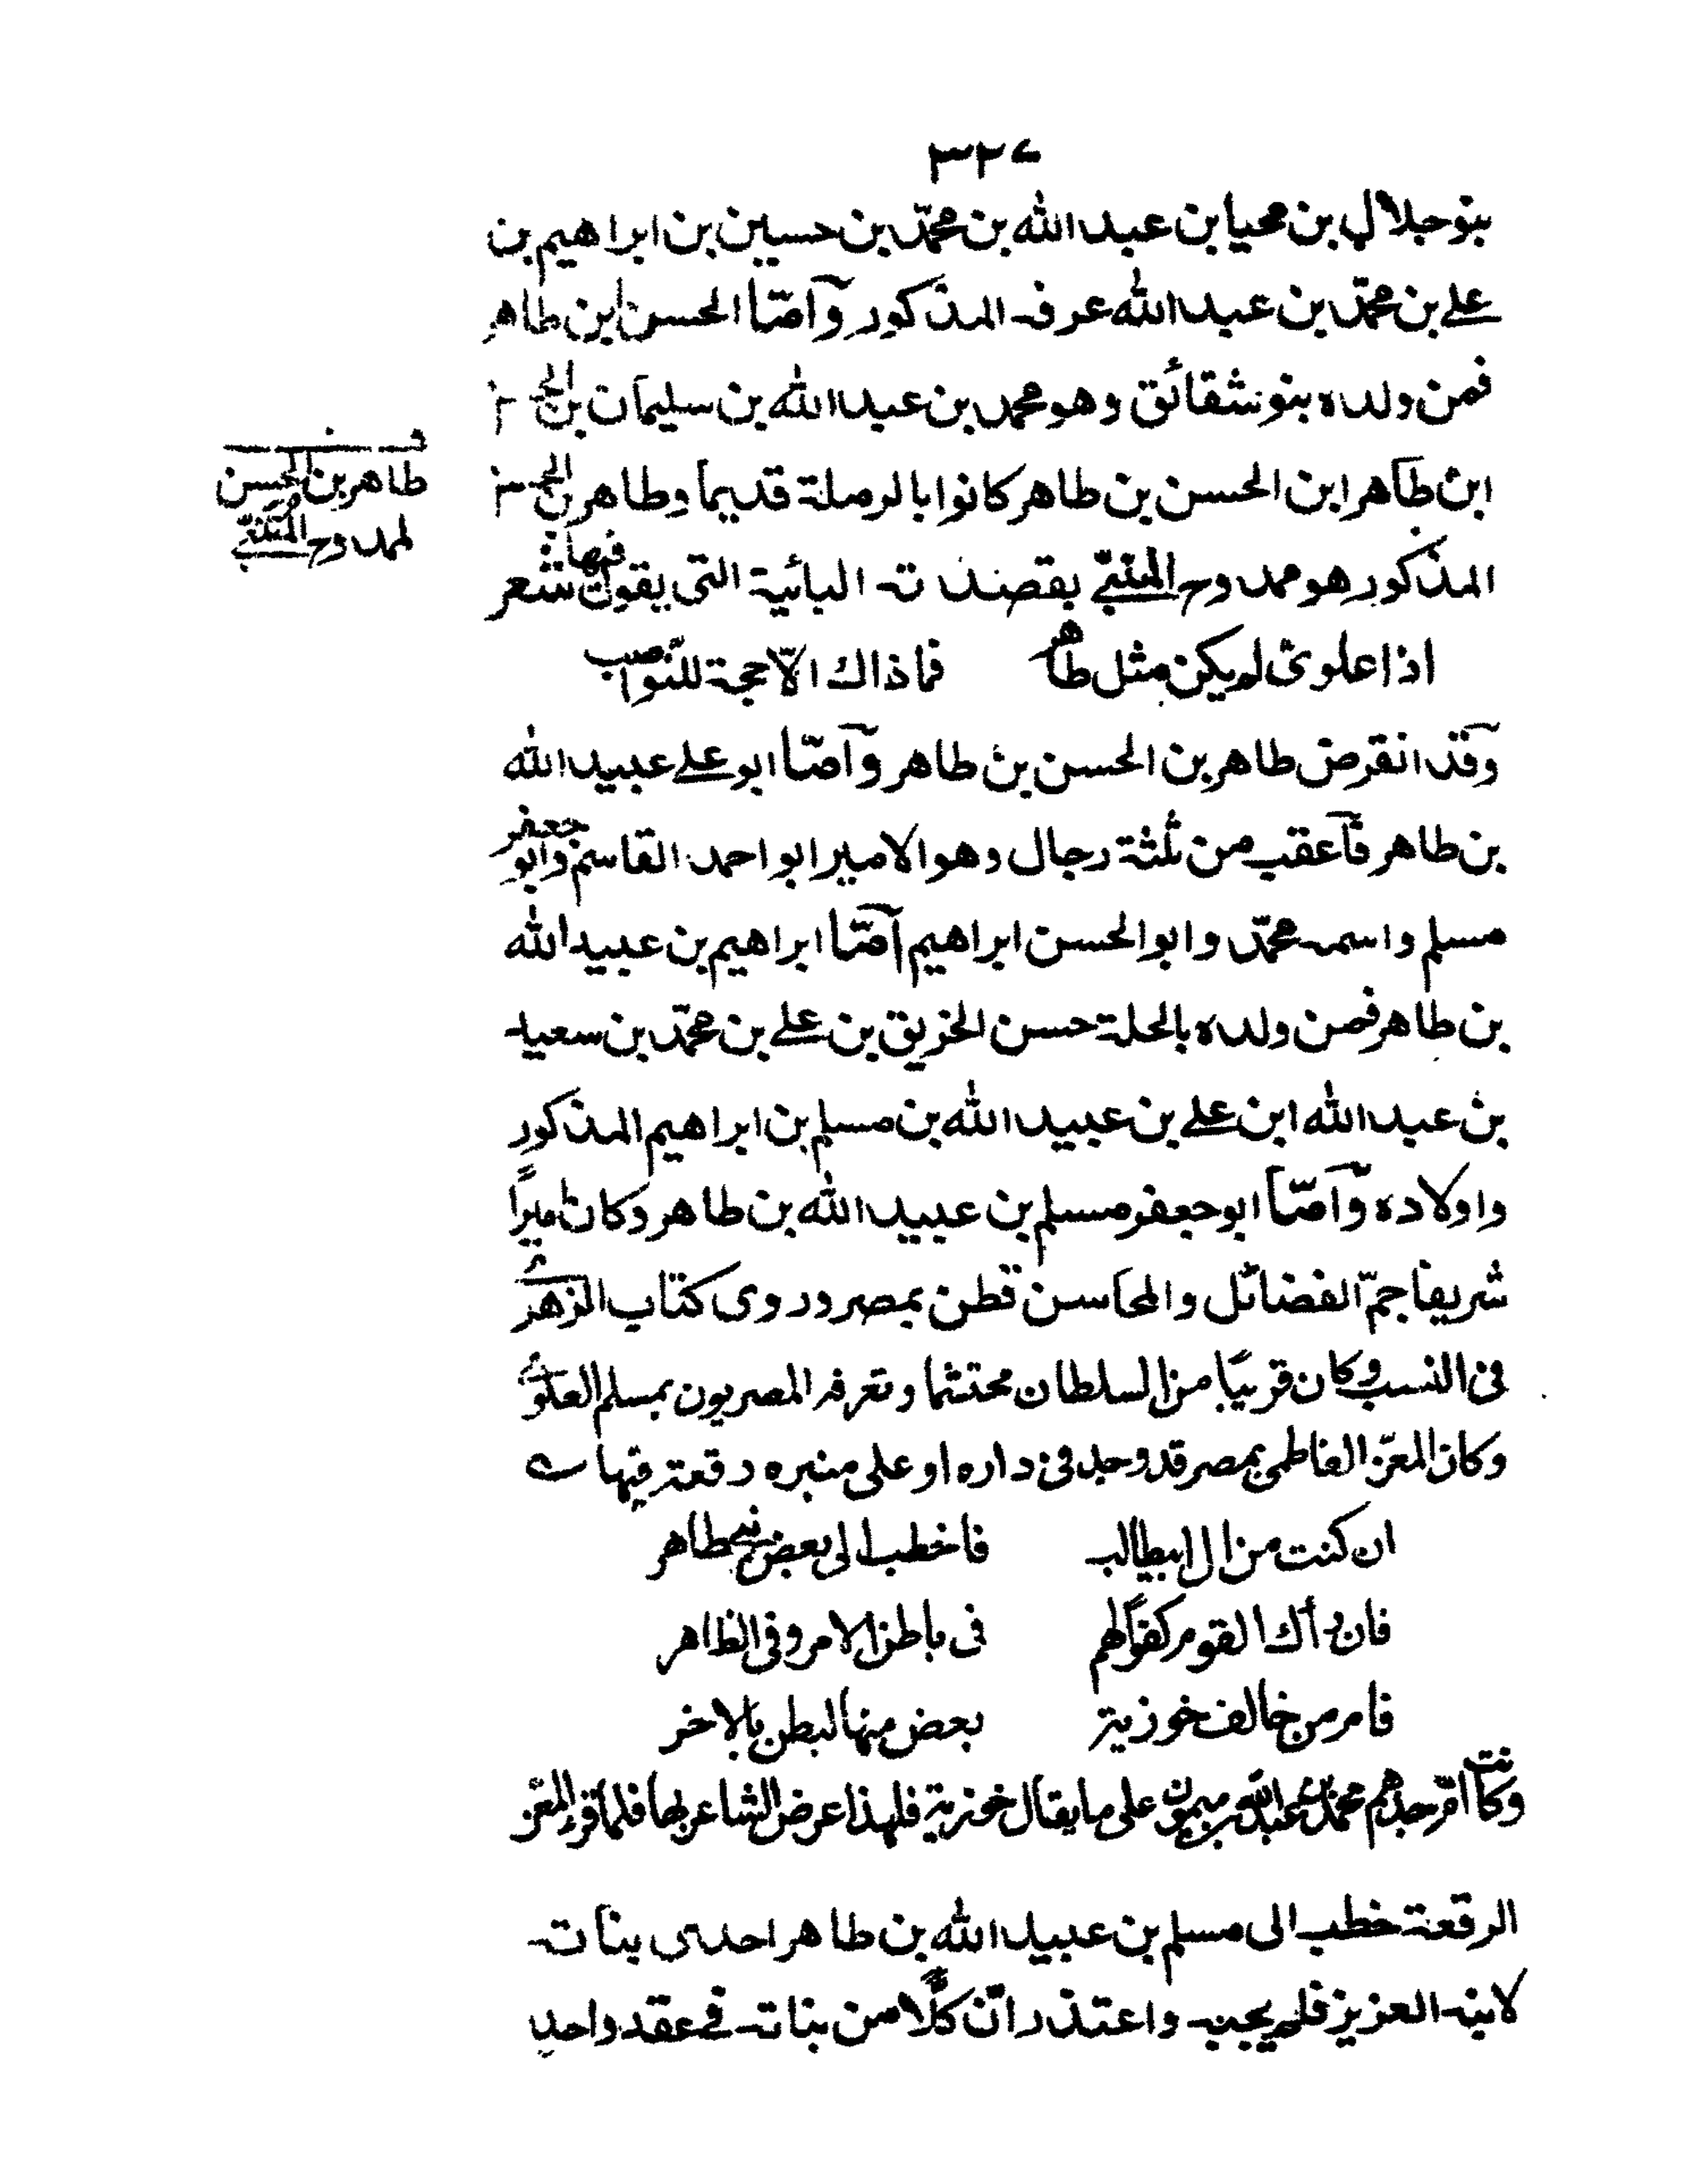 ٣٢٤
بنو جلال بن محيا بن عبد الله بن محمّد بن حسين بن ابراهيم بن
على بن محمّد بن عبد الله عرفه المذكور وآمّا الحسن ابن طاهر
فمن ولده بنو شقائق وهو محمد بن عبد الله بن سليمان بن
ابن طاهر ابن الحسن بن طاهر كانوا بالرملة قديماً وطاهر بن
المذكور هو ممدوح المتنبّى بقصيدته البائية التى يقول فيها شعر
اذا علوىّ لم يكن مثل طاهر فما ذاك الّا حجة للنّواصب
وقد انقرض طاهر بن الحسن بن طاهر وآمّا ابو على عبيد الله
بن طاهر فآعقب من ثلثة رجال وهو الامير ابو احمد القاسم وابو جعفر
مسلم واسمه محمّد وابو الحسن ابراهيم آمّا ابراهيم بن عبيد الله
بن طاهر فمن ولده بالحلة حسن الخزيق بن على بن محمّد بن سعيد
بن عبد الله ابن على بن عبيد الله بن مسلم بن ابراهيم المذكور
واولاده وّآمّا ابو جعفر مسلم بن عبيد الله بن طاهر وكان اميراً
شريفا جمّ الفضائل والمحاسن قطن بمصر وروى كتاب الزهرى
فى النسب وكان قريبًا من السلطان محتشما وتعرفه المصريون بمسلم العلوىّ
وكان المعزّ الفاطمى بمصر قد وجد فى داره او على منبره رقعة فيها
ان كنت من ال ابيطالب فاخطب الى بعض بنى طاهر
فان رأك القوم كفوًا لهم فى باطن الامر وفى الظاهر
فام من خالف خوزية بعض منها البطن بالاخر
وكانت امّ جدهم محمد بن عبد الله بن ميمون على ما يقال خوزية فلهذا عرض الشاعر بها فلما قرء المعزّ
الرقعة خطب الى مسلم بن عبيد الله بن طاهر احدى بناته
لابنه العزيز فلم يجبه واعتذر انّ كلًّا من بناته فى عقد واحد
طاهر بن الحسن
ممدوح المتنبّى